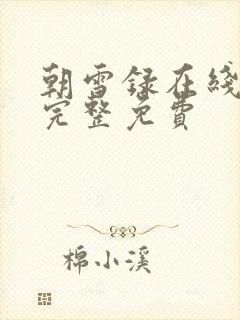 朝雪录在綫
完整免費
棉小溪